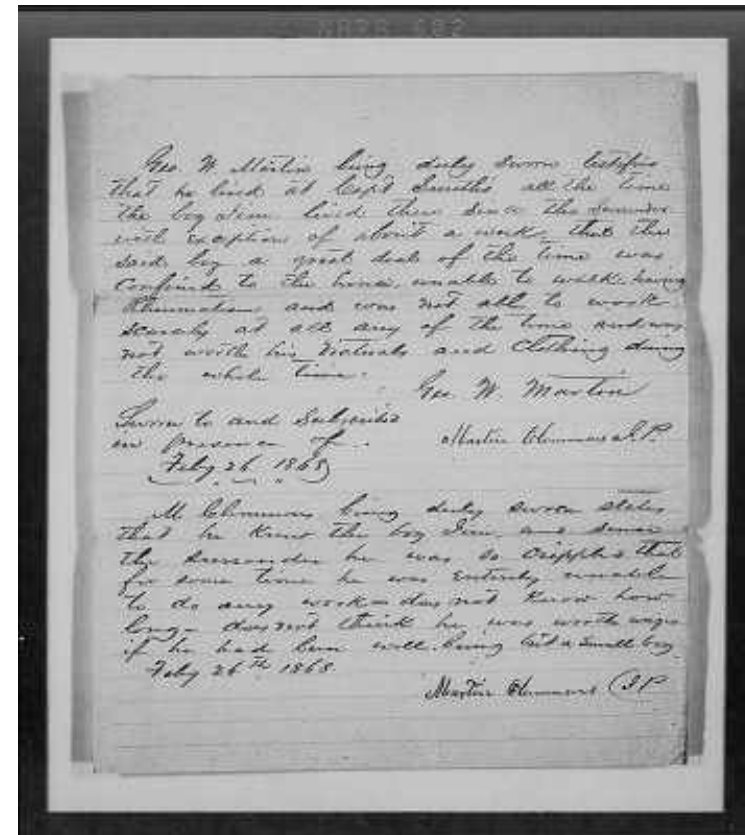 Geo W Martin being duly sworn testifies
that he lived at Capt Smiths all the time
the boy Jim lived there since the surrender
with exception of about a week, that the
said boy a great deal of the time was
confined to the house, unable to walk having
Rheumatism and was not all to work
scarcely at all any of the time and was
not worth his victuals and clothing during
the whole time.
Geo. W. Martin
Sworn to and Subscribed
in presence of
Martin Clemmons J.P.
Feby 26 1868
M Clemmons being duly sworn states
that he knew the boy Jim and since
the surrender he was so crippled that
for some time he was entirely unable
to do any work - does not know how
long - does not think he was worth wages
if he had been well, being but a small boy
Feby 26th 1868.
Martin Clemmons J.P.